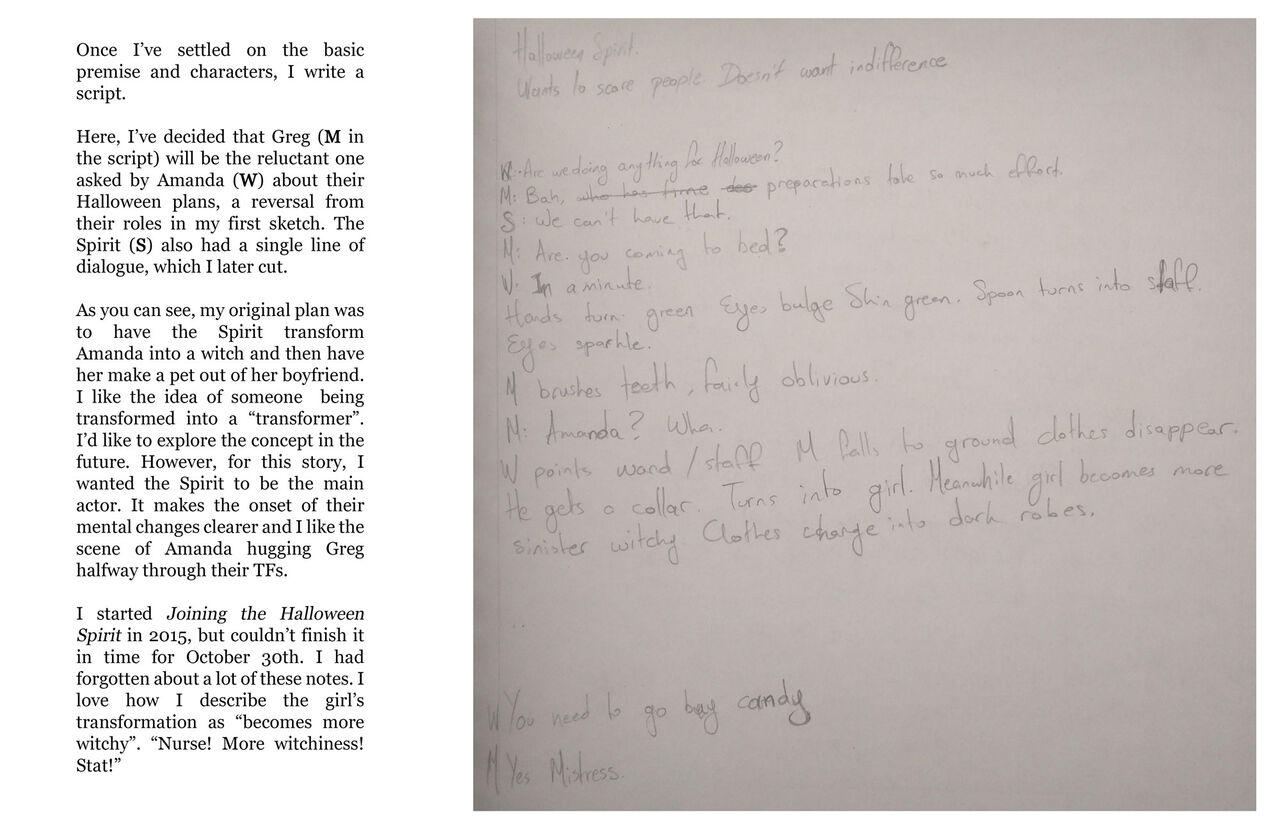 Once I’ve settled on the basic
premise and characters, I write a
script.
Here, I’ve decided that Greg (M in
the script) will be the reluctant one
asked by Amanda (W) about their
Halloween plans, a reversal from
their roles in my first sketch. The
Spirit (S) also had a single line of
dialogue, which I later cut.
As you can see, my original plan was
to have the Spirit transform
Amanda into a witch and then have
her make a pet out of her boyfriend.
I like the idea of someone being
transformed into a “transformer”.
I’d like to explore the concept in the
future. However, for this story, I
wanted the Spirit to be the main
actor. It makes the onset of their
mental changes clearer and I like the
scene of Amanda hugging Greg
halfway through their TFs.
I started Joining the Halloween
Spirit in 2015, but couldn’t finish it
in time for October 30th. I had
forgotten about a lot of these notes. I
love how I describe the girl’s
transformation as “becomes more
witchy”. “Nurse! More witchiness!
Stat!”
Halloween Spirit.
Wants to scare people Doesn't want indifference
W: Are we doing anything for Halloween?
M: Bah, who has time des preparations take so much effort.
S: We can't have that.
M: Are you coming to bed?
W: In a minute.
Hands turn green Eyes bulge Skin green. Spoon turns into staff.
Eyes sparkle.
M brushes teeth, fairly oblivious.
M: Amanda? Wha.
W points wand/staff M falls to ground clothes disappear.
He gets a collar. Turns into girl. Meanwhile girl becomes more
sinister witchy Clothes change into dark robes.
W You need to go buy candy
M Yes Mistress.